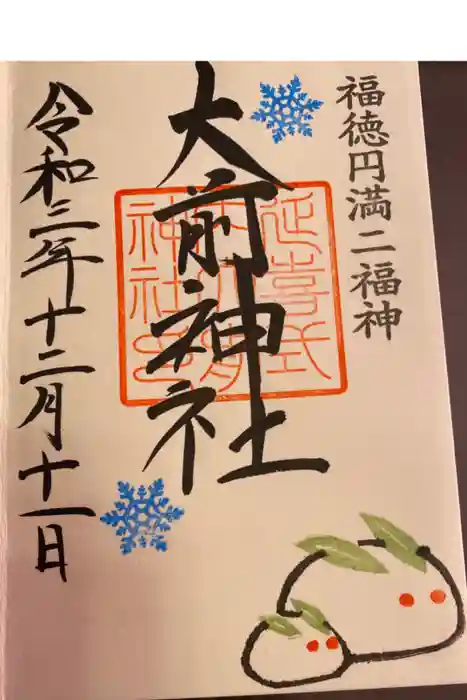 福徳円満二福神
大前神社
延喜式
大前
神社
令和三年十二月十一日